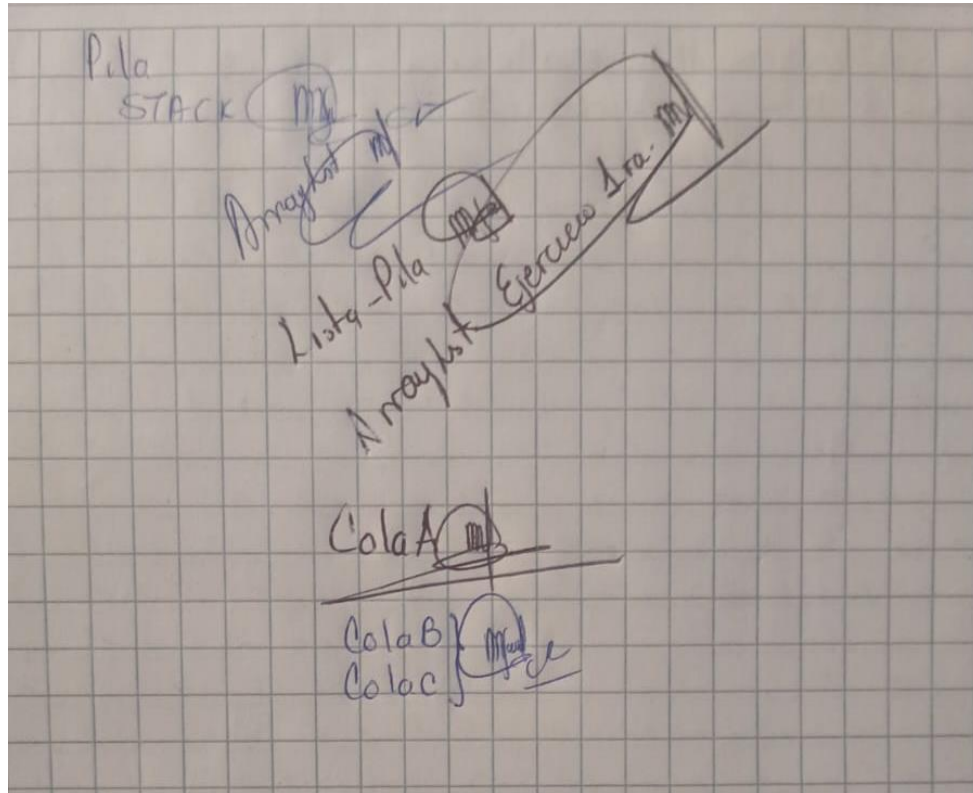 Pila
STACK
Arraylist
Lista-Pila
Arraylist Ejercicio 1ra.
Cola A
Cola B
Cola C